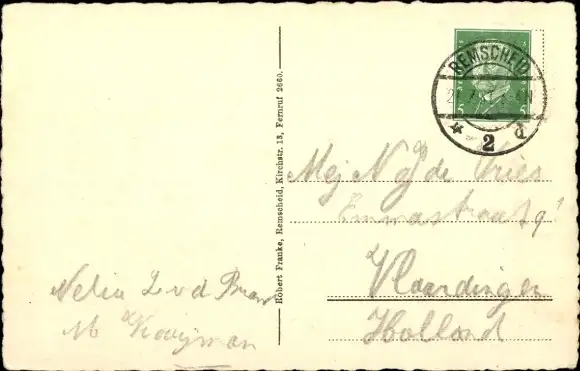 REMSCHEID
2 d
5 5
Mej N de Vries
Emmastraat 9
Vlaardingen
Holland
Robert Franke, Remscheid, Kirchstr. 13, Fernruf 2660.
Nelia v d
M Kooijman